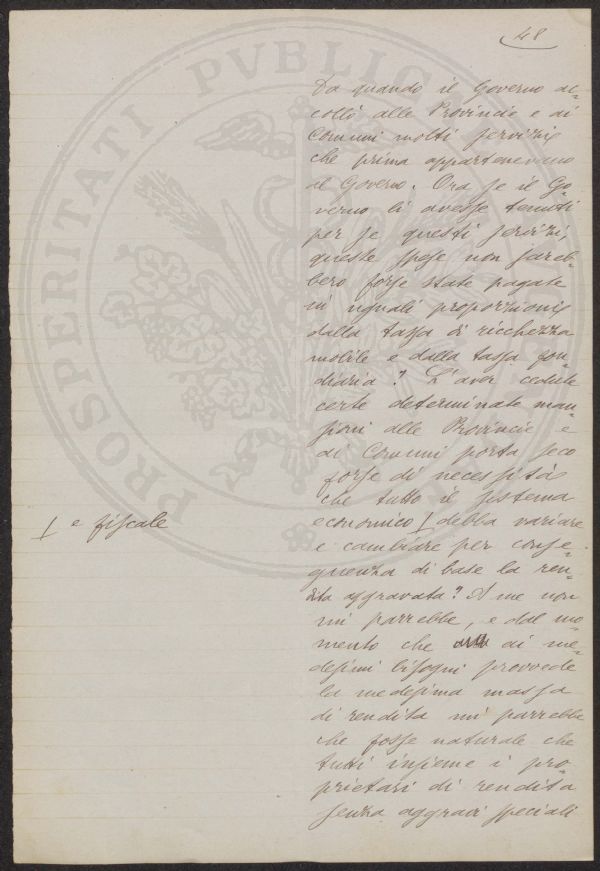 48
Da quando il Governo ac=
collò alle Provincie e ai
Comuni molti servizii
che prima appartenevano
al Governo. Ora se il Go=
verno li avesse tenuti
per se questi servizi,
queste spese non sareb=
bero forse state pagate
in uguali proporzioni
dalla tassa di ricchezza
mobile e dalla tassa fon=
diaria? L'aver cedute
certe determinate man=
sioni alle Provincie e
ai Comuni porta seco
forse di necessità
che tutto il sistema
economico / debba variare
/ e fiscale
e cambiare per conse=
guenza di base la ren=
dita aggravata? A me non
mi parrebbe, e dal mo=
mento che ai me=
desimi bisogni provvede
la medesima massa
di rendita mi parrebbe
che fosse naturale che
tutti insieme i pro=
prietari di rendita
senza aggravi speciali
PROSPERITATI PVBLICAE